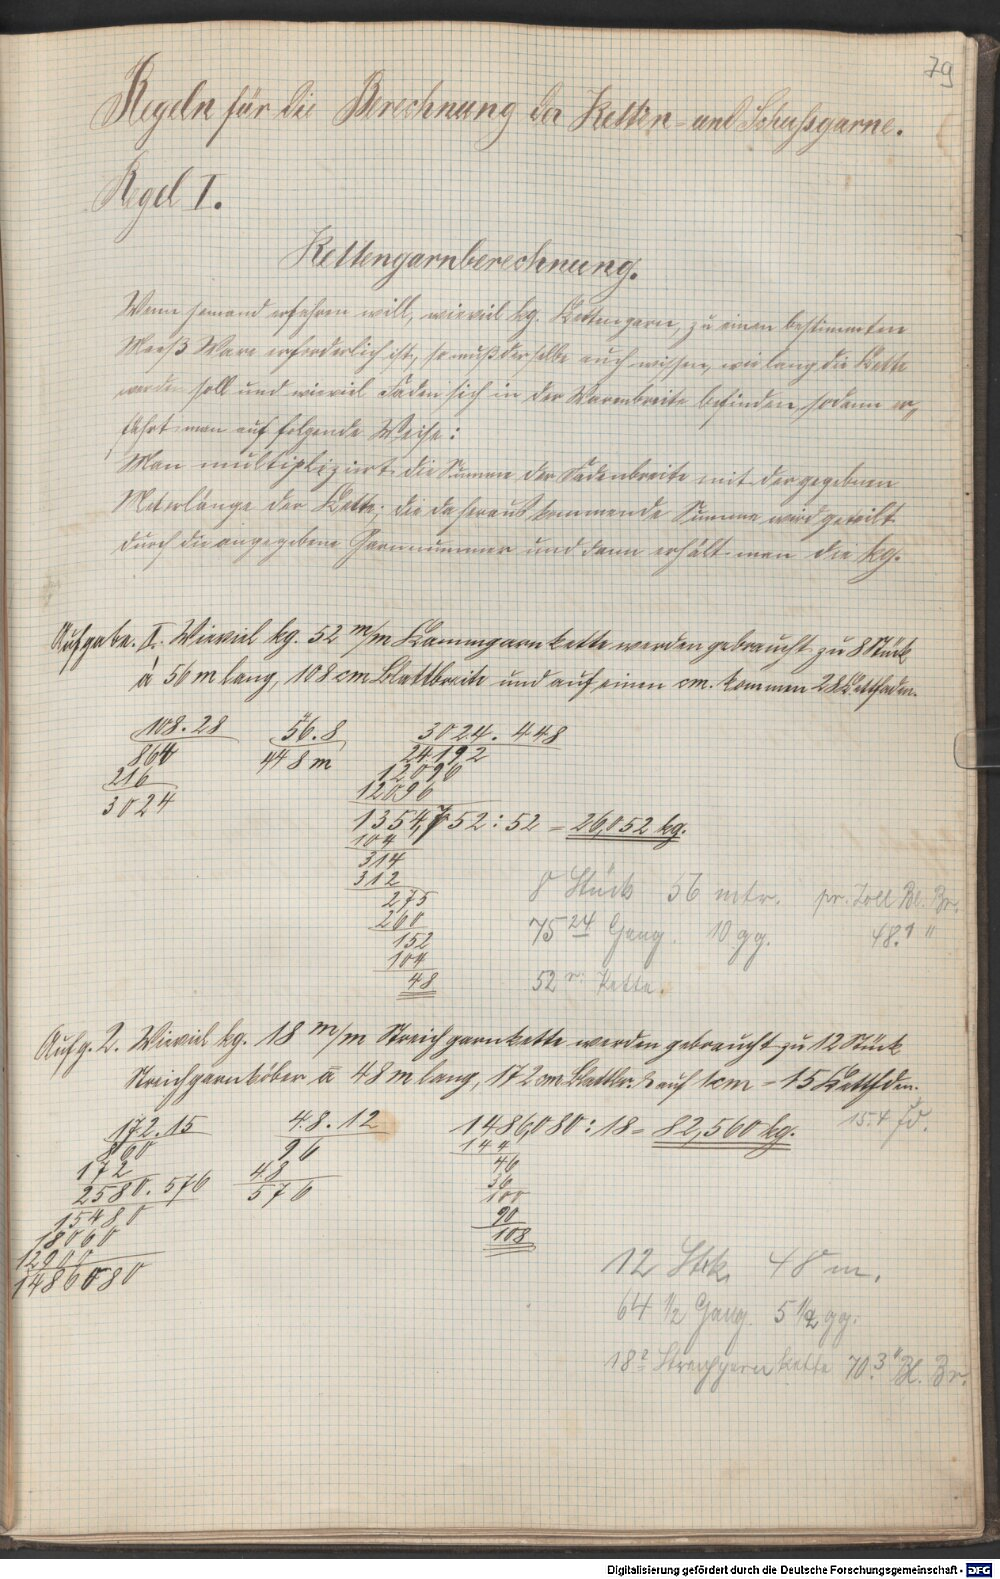 79
Regeln für die Berechnung der Ketten- und Schußgarne.
Regel I.
Kettengarnberechnung.
Wenn jemand erfahren will, wieviel kg. Kettengarn, zu einem bestimmten
Ware erforderlich ist, so muß derselbe auch wissen, wie lang die Kette
werden soll und wieviel Faden sich in der Warenbreite befinden, sodann er-
fährt man auf folgende Weise:
Man multipliziert die Summe der Fadenbreite mit der gegebenen
Meterlänge der Kette; die daraus kommende Summe wird geteilt
durch die angegebene Garnnummer und dann erhält man die kg.
Aufgabe. I. Wieviel kg. 52 m/m Kammgarnkette werden gebraucht zu 8 Stück
á 56 m lang, 108 cm Blattbreite und auf einen cm. kommen 28 Kettfaden.
108.28
864
216
3024
56.8
448 m
3024.448
24192
12096
12096
1354,752 : 52 = 26,052 kg.
104
314
312
275
260
152
104
48
8 Stück 56 mtr. pr. Zoll Bl. Br.
75 24 Gang. 10 gg. 48.1 "
52r Kette.
Aufg. 2. Wieviel kg. 18 m/m Streichgarnkette werden gebraucht zu 12 Stück
Streichgarn á 48 m lang, 172 cm auf 1 cm = 15 Kettfden.
15.4 fd.
172.15
860
172
2580.576
15480
18060
12900
1486080
48.12
96
48
576
1486,080 : 18 = 82,560 kg.
144
46
36
100
90
108
12 Stck. 48 m.
64 1/2 Gang. 5 1/2 gg.
18r Streichgarn Kette 70.3" Bl. Br.
Digitalisierung gefördert durch die Deutsche Forschungsgemeinschaft - DFG